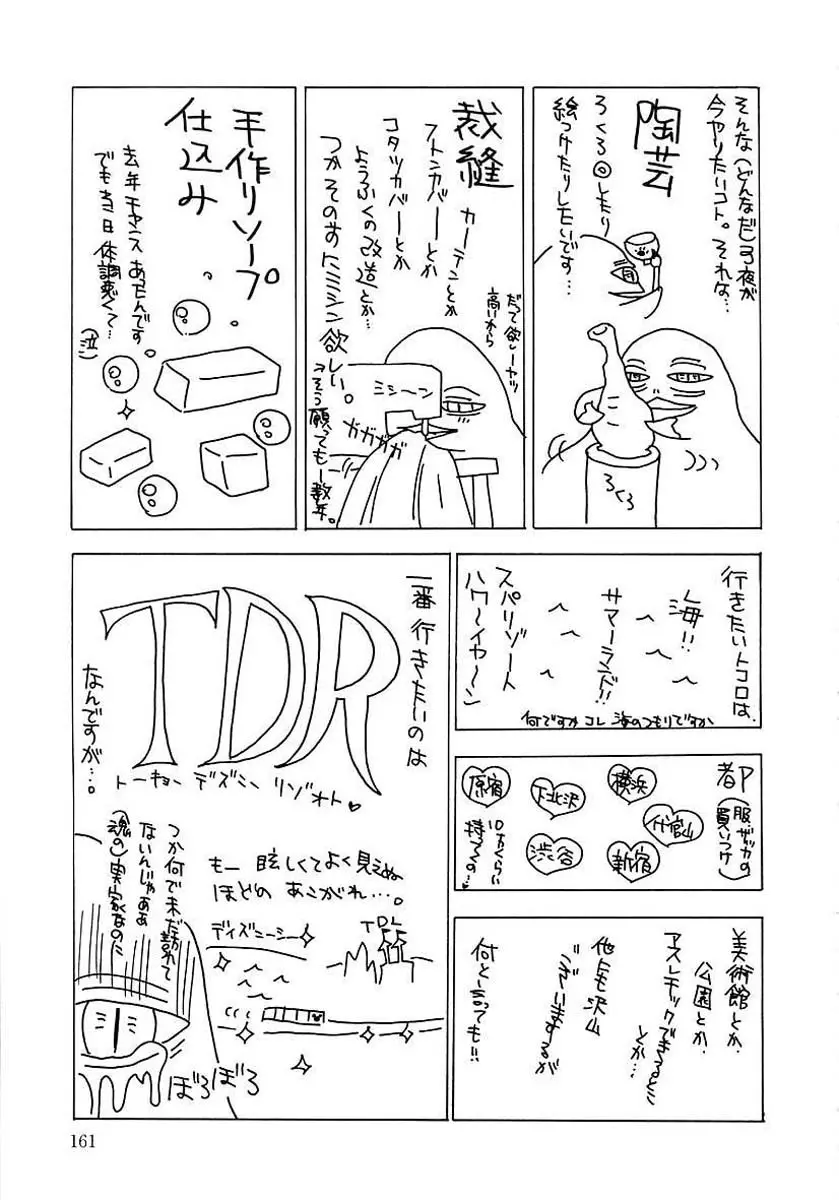 陶芸
そんな(どんなだ)3夜が
今やりたいコト。それな…
ろくろ◎しもり
絵つけたりしてもいです…
ろくろ
裁縫
カーテンとか
フトンカバーとか
コタツカバーとか
ようふくの改造とか…
つかそのまえにミシン欲しい。
→そう願っても一数年。
だって欲しーヤツ
高いから
ミシーン
ガガガガ
手作りソープ
仕込み
去年チャンスあったんです
でも当日体調悪くて…
(泣)
行きたいトコロは、
海!!
サマーランド!!
スパリゾート
ハワ〜イヤ〜ン
何ですかコレ 海のつもりですか
都内
(服、ザッカの
買いつけ)
原宿
下北沢
横浜
代官山
渋谷
新宿
10万くらい
持ってくの…
美術館とか、
公園とか、
アスレチックできるとこ
とか…
他にも沢山
ございまするが
何と言っても!!
一番行きたいのは
TDR
トーキョー デズニー リゾオト♥
なんですが…。
もー眩しくてよく見えぬ
ほどのあこがれ…。
ディズニーシー
TDL
つか何で未だ訪れて
ないんじゃあぁ
(魂の)実家なのに
ぼろぼろ
161